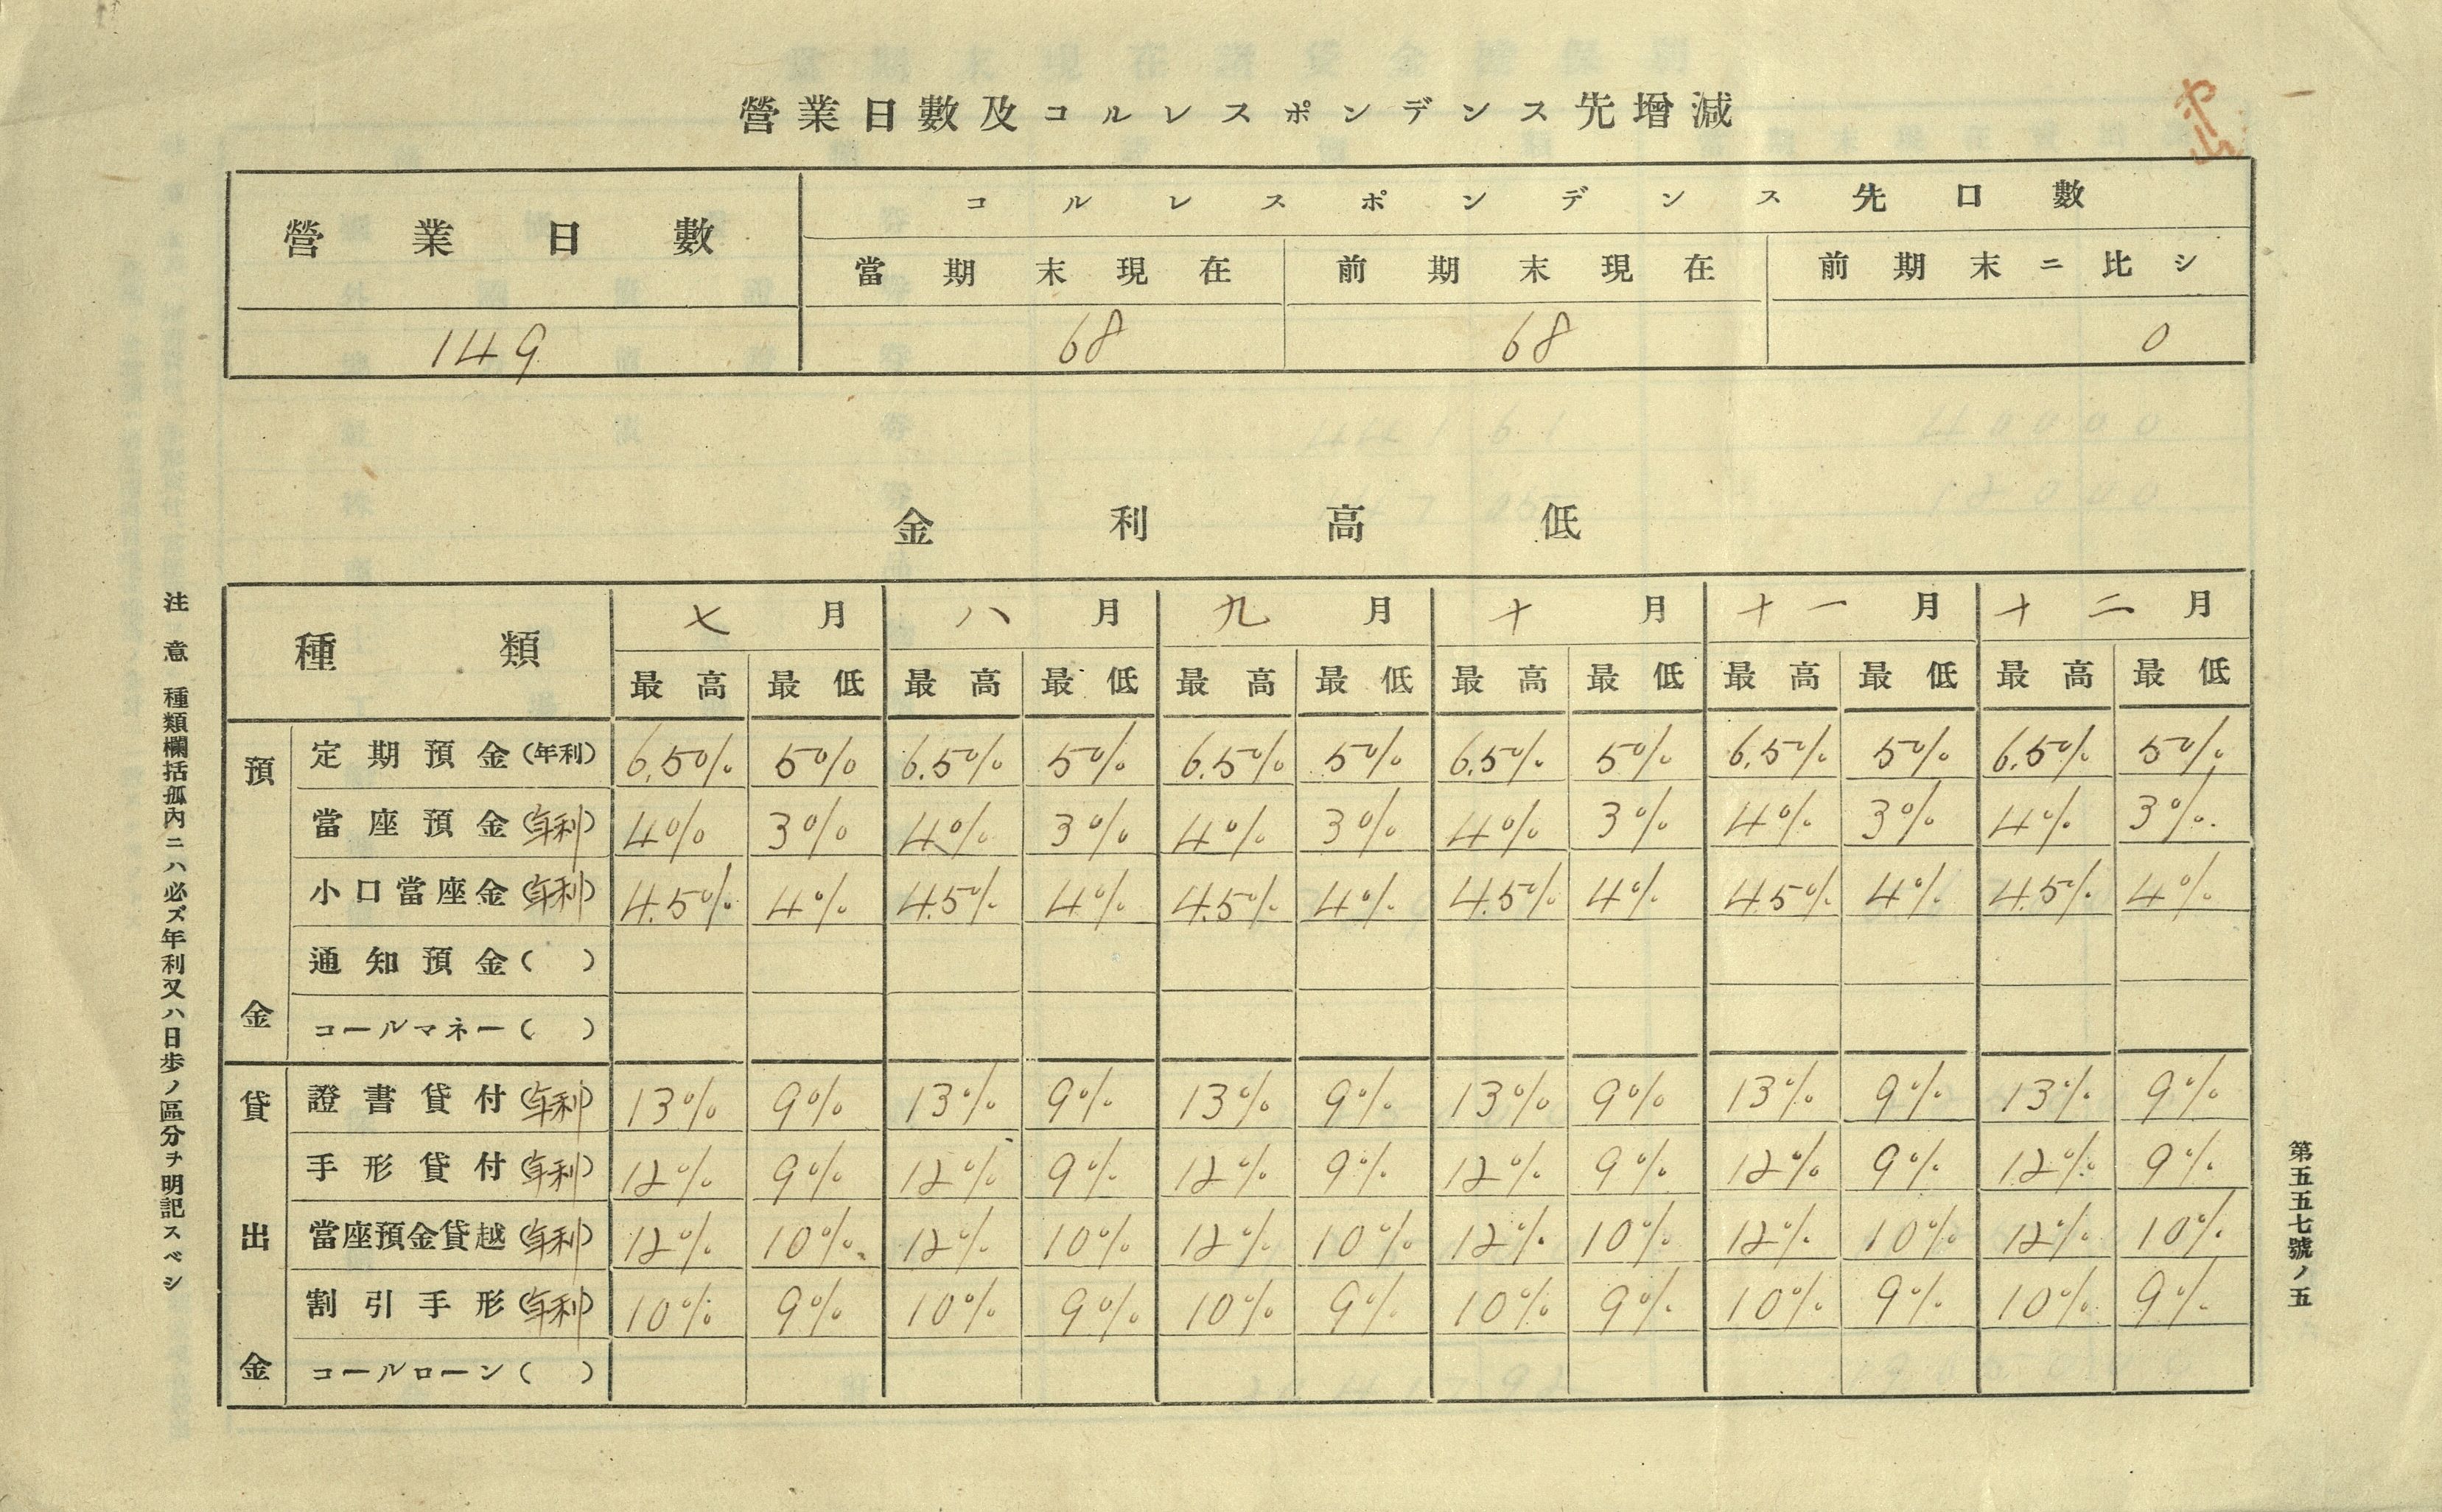 營業日數及コルレスポンデンス先增減
營業日數 コルレスポンデンス先口數
當期末現在 前期末現在 前期末ニ比シ
149 68 68 0
金利高低
種類 七月 八月 九月 十月 十一月 十二月
最高 最低 最高 最低 最高 最低 最高 最低 最高 最低 最高 最低
預金
定期預金(年利) 6.5% 5% 6.5% 5% 6.5% 5% 6.5% 5% 6.5% 5% 6.5% 5%
當座預金(年利) 4% 3% 4% 3% 4% 3% 4% 3% 4% 3% 4% 3%
小口當座金(年利) 4.5% 4% 4.5% 4% 4.5% 4% 4.5% 4% 4.5% 4% 4.5% 4%
通知預金( )
コールマネー( )
貸出金
證書貸付(年利) 13% 9% 13% 9% 13% 9% 13% 9% 13% 9% 13% 9%
手形貸付(年利) 12% 9% 12% 9% 12% 9% 12% 9% 12% 9% 12% 9%
當座預金貸越(年利) 12% 10% 12% 10% 12% 10% 12% 10% 12% 10% 12% 10%
割引手形(年利) 10% 9% 10% 9% 10% 9% 10% 9% 10% 9% 10% 9%
コールローン( )
注意 種類欄括孤內ニハ必ズ年利又ハ日歩ノ區分ヲ明記スベシ
第五五七號ノ五